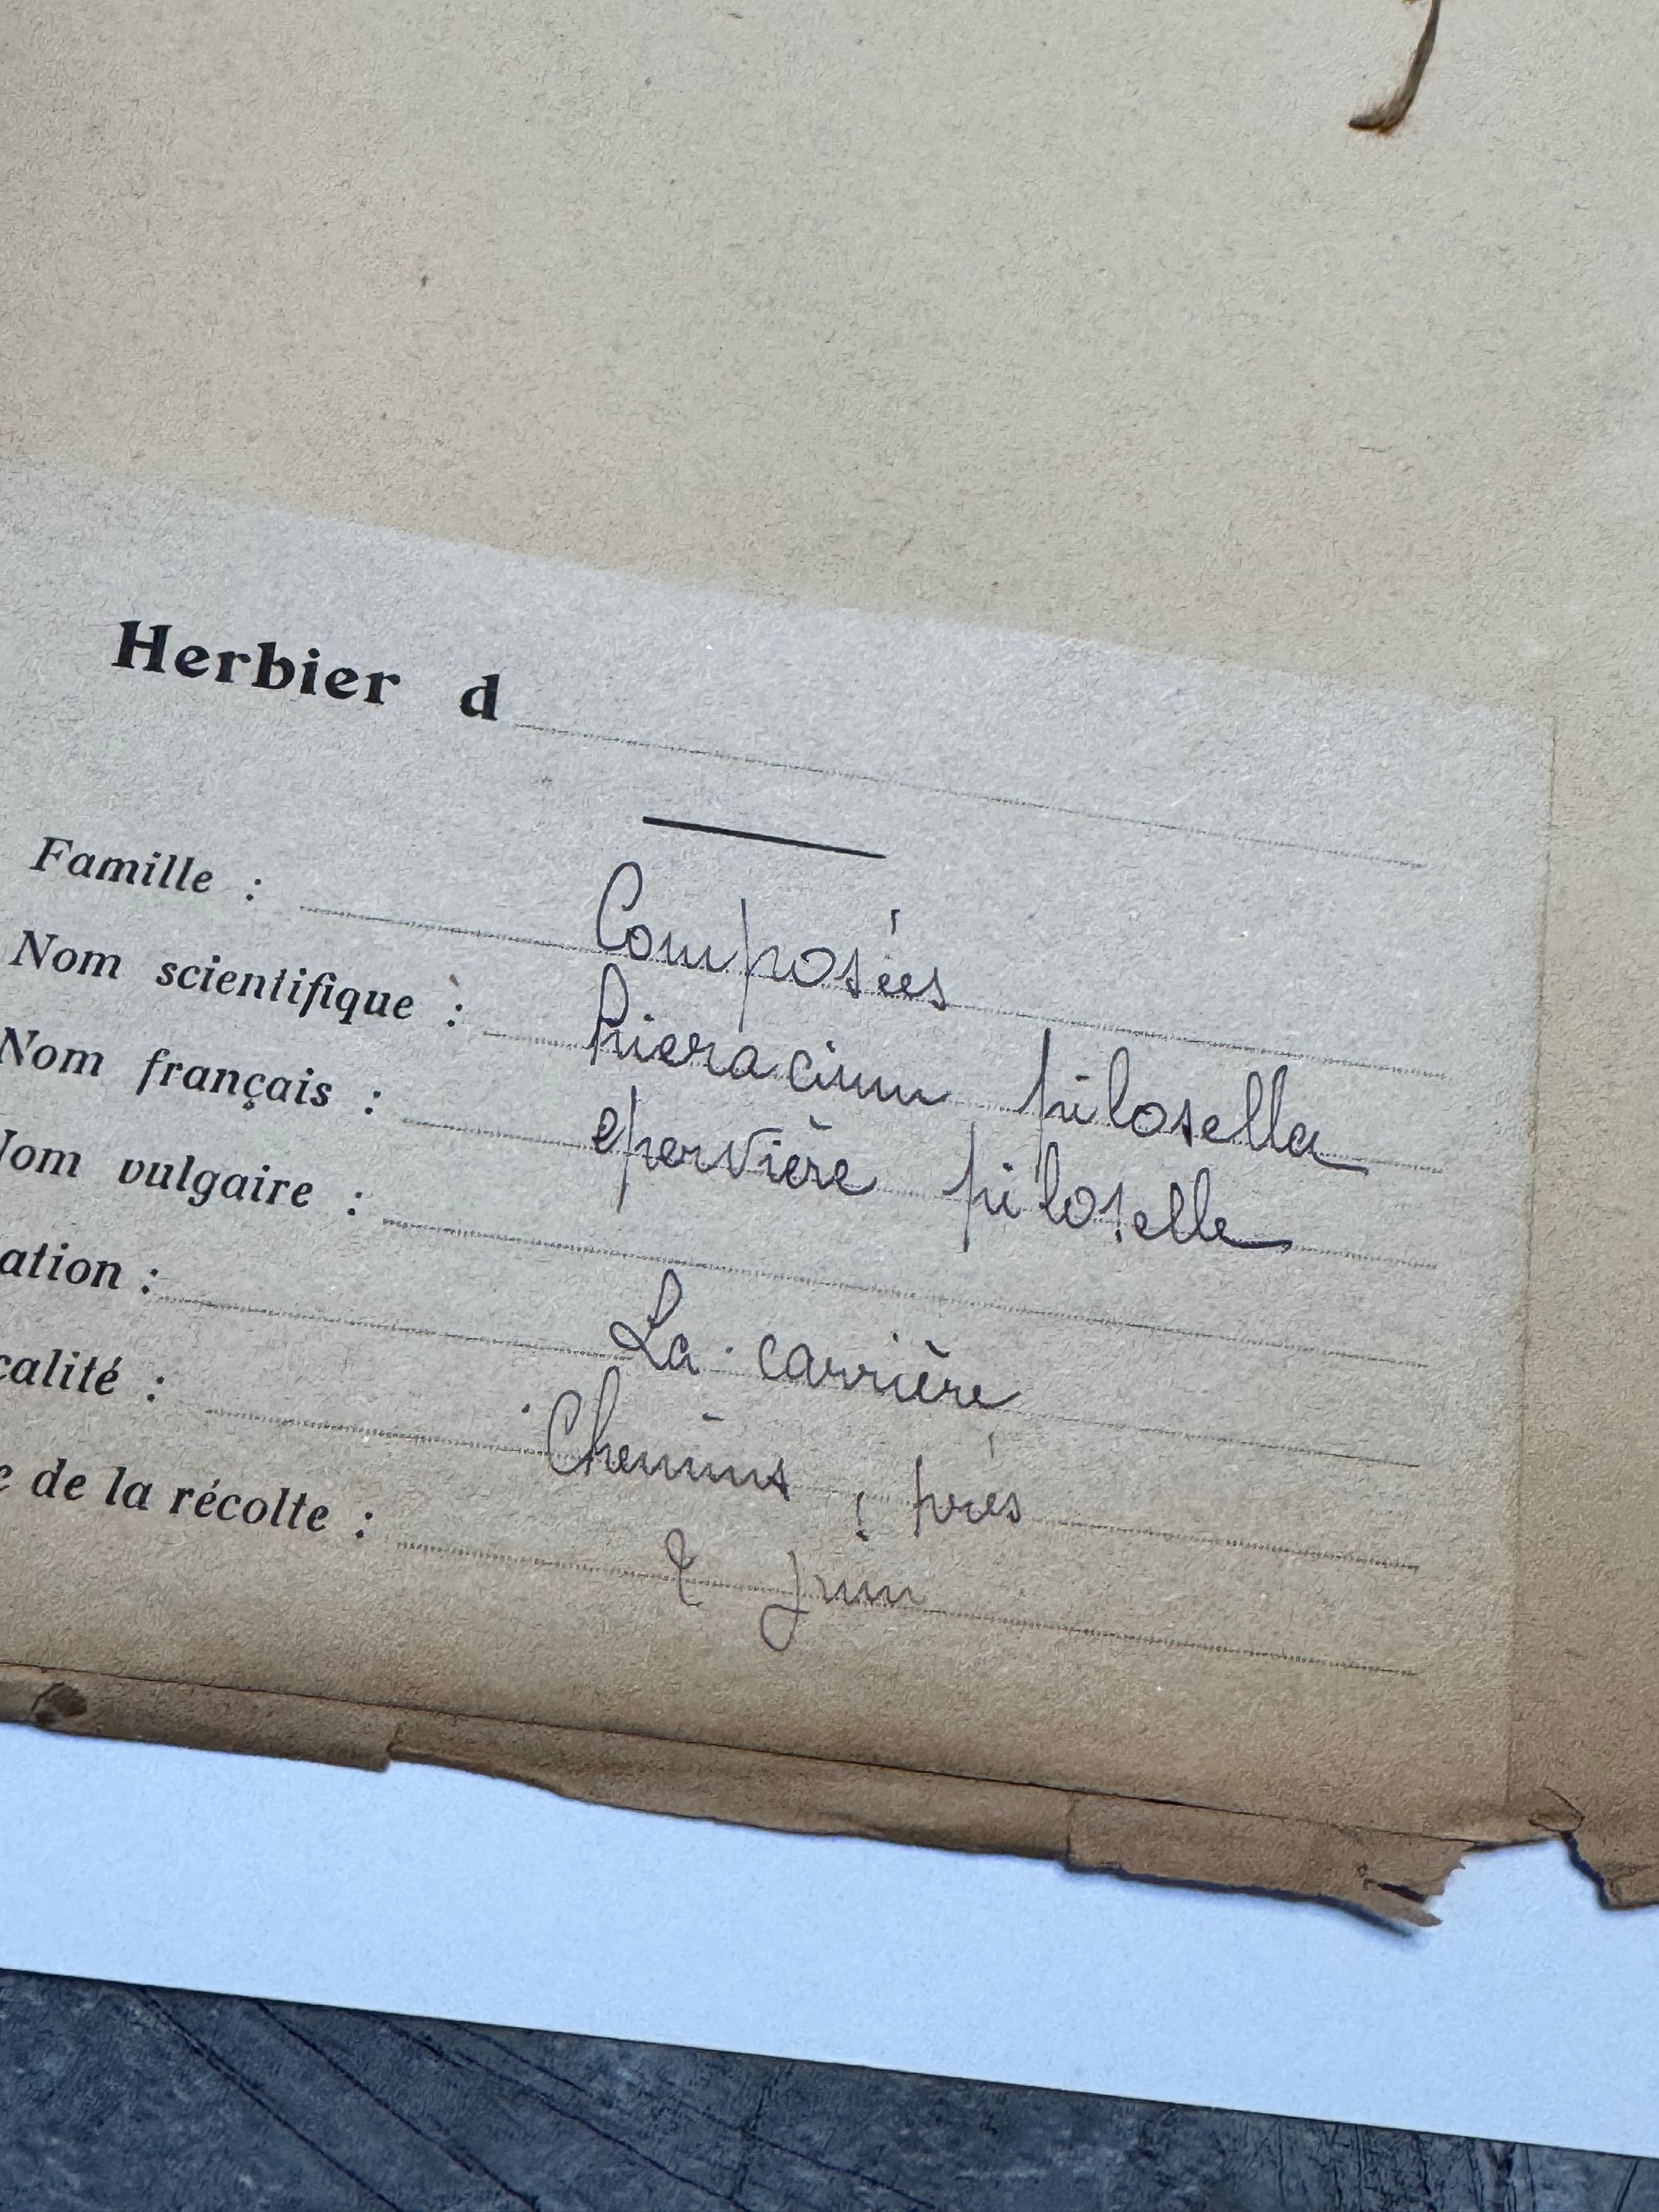 Herbier d
Famille : Composées
Nom scientifique : hieracium pilosella
Nom français : epervière piloselle
Nom vulgaire :
ation : La carrière
calité : Chemins, prés
e de la récolte : Juin